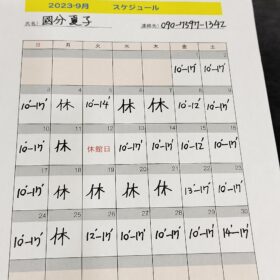 2023・9月 スケジュール
氏名: 國分 夏子 連絡先: 090-7597-1342
日 月 火 水 木 金 土
1 2
10'-17' 10'-17'
3 4 5 6 7 8 9
10'-17' 休 10'-14' 休 休 10'-12' 10'-17'
10 11 12 13 14 15 16
10'-17' 10'-17' 休館日 10'-17' 10'-17' 10'-12' 10'-17'
17 18 19 20 21 22 23
10'-17' 休 休 休 休 13'-17' 10'-17'
24 25 26 27 28 29 30
10'-17' 休 12'-17' 10'-17' 10'-17' 10'-17' 14'-17'